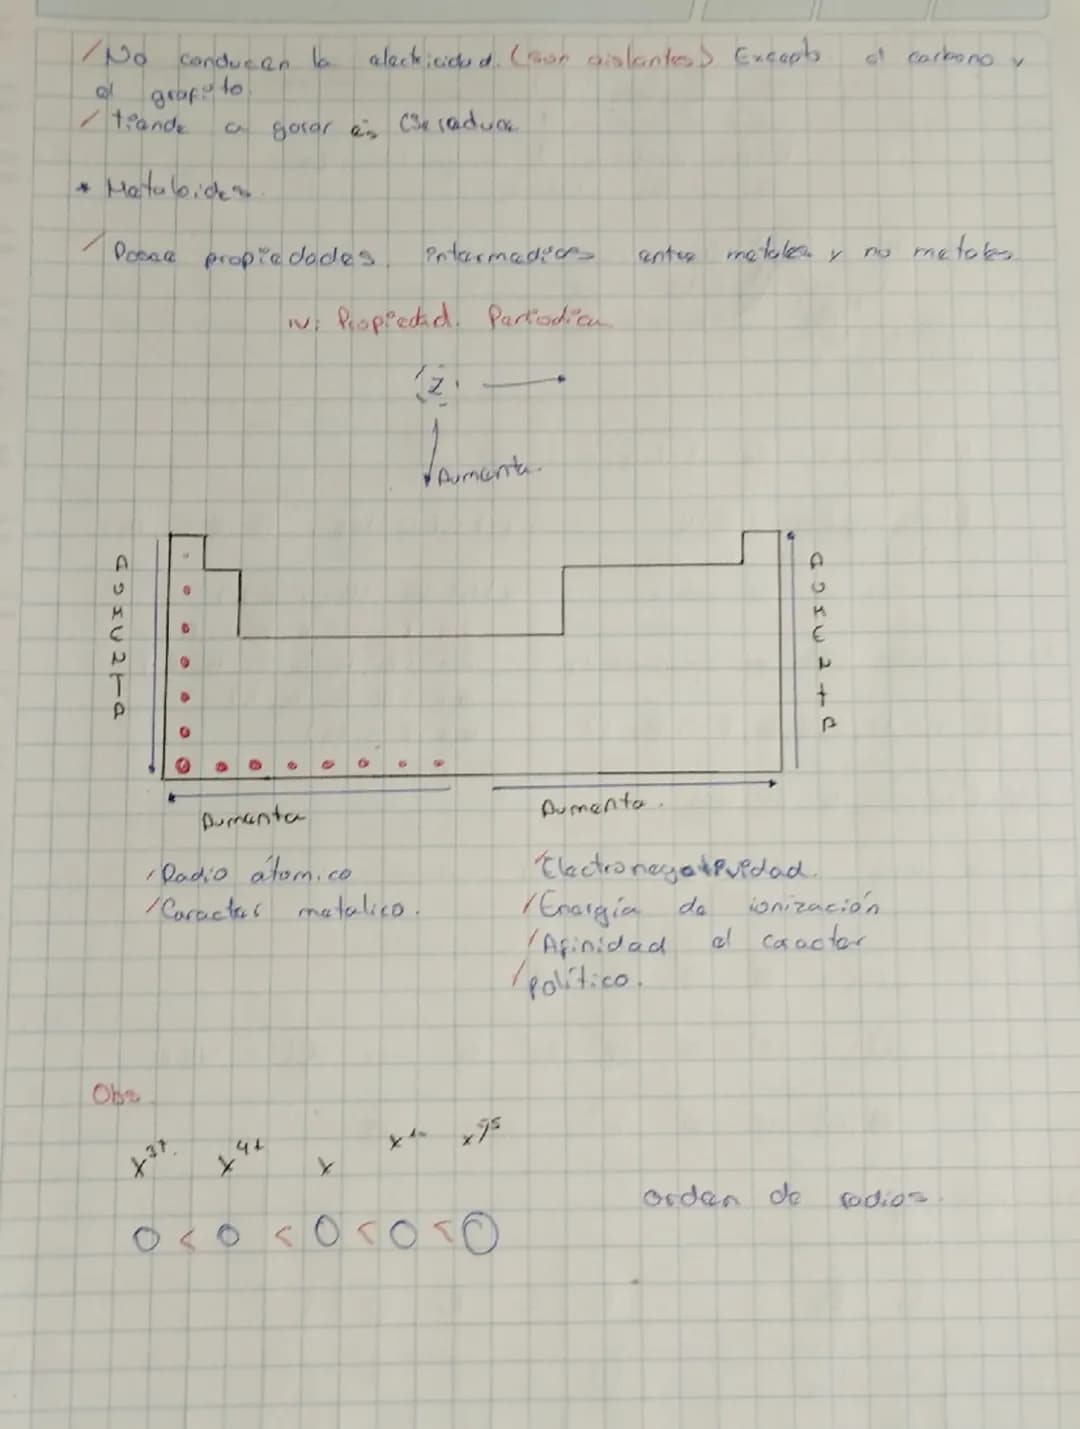 /No conducen la electricidad. (son aislantes) Excepto el carbono y
el grafito.
/tiende a gosar e⁻s (Se reduce
* Metaloides.
/Posee propiedades. intermedios entre metales y no metales
IV: Propiedad. Periodica
Z
Aumenta.
AUMENTA
AUMENTA
Aumenta
Aumenta.
/Radio átomico
/Caracter metalico.
/Electronegatividad.
/Energía de ionización
/Afinidad el caacter
/político.
Obs
x x x x x
O < O < O < O < O
orden de radios.